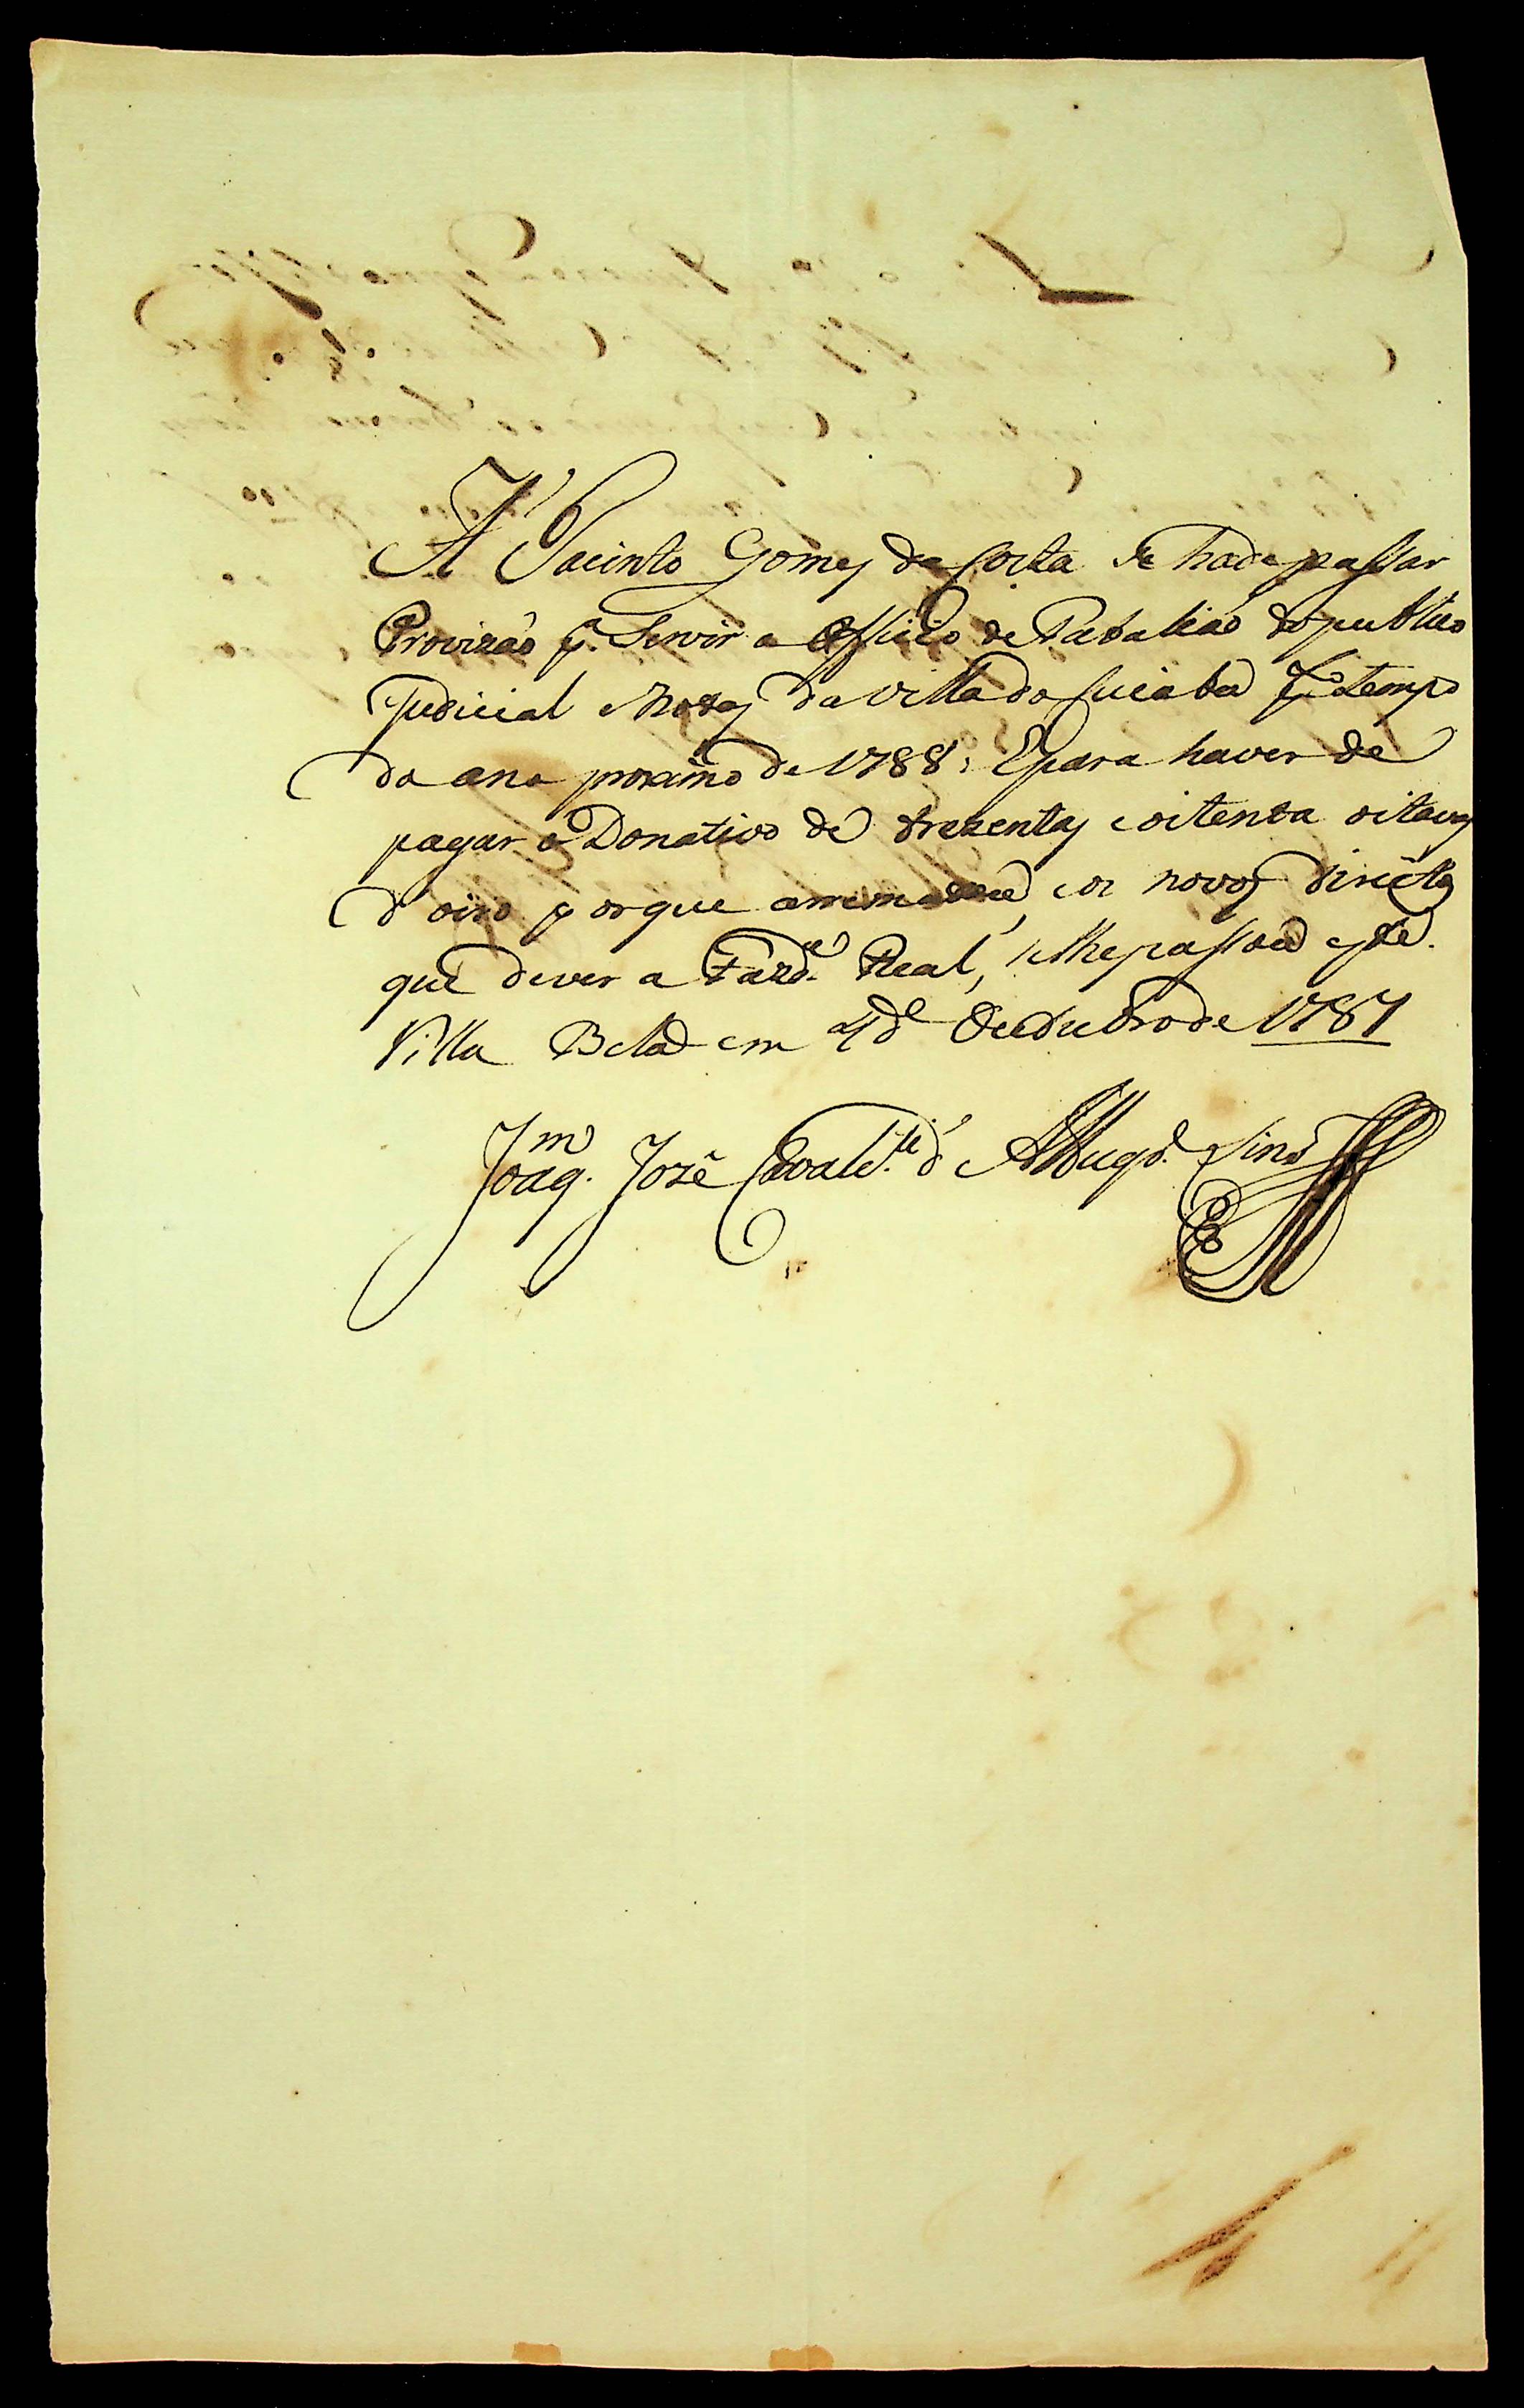 A Jacinto Gomes da Costa se hade passar
Provizaõ p.ª Servir o Officio de Tabaliaõ do publico
Judicial e Notas da Villa do Cuiabá p.º tempo
do ano proximo de 1788; E para haver de
pagar o Donativo de trezentas e oitenta oitavas
d'oiro porque arrematou, e os novos direitos
que dever a Fazd.ª Real, se lhe passou este.
Villa Bela em 4 d'Outubro de 1787
Joaq.m José Cavalc.te d'Albuqd. Lins